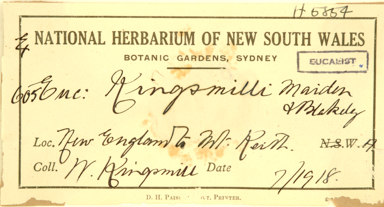 H 6854
NATIONAL HERBARIUM OF NEW SOUTH WALES
BOTANIC GARDENS, SYDNEY
EUCALIST
605 Euc: Kingsmilli Maiden
& Blakely
Loc. New England to Mt. Keith N.S.W.A
Coll. W. Kingsmill Date 7/1918.
D. H. PRINTER.